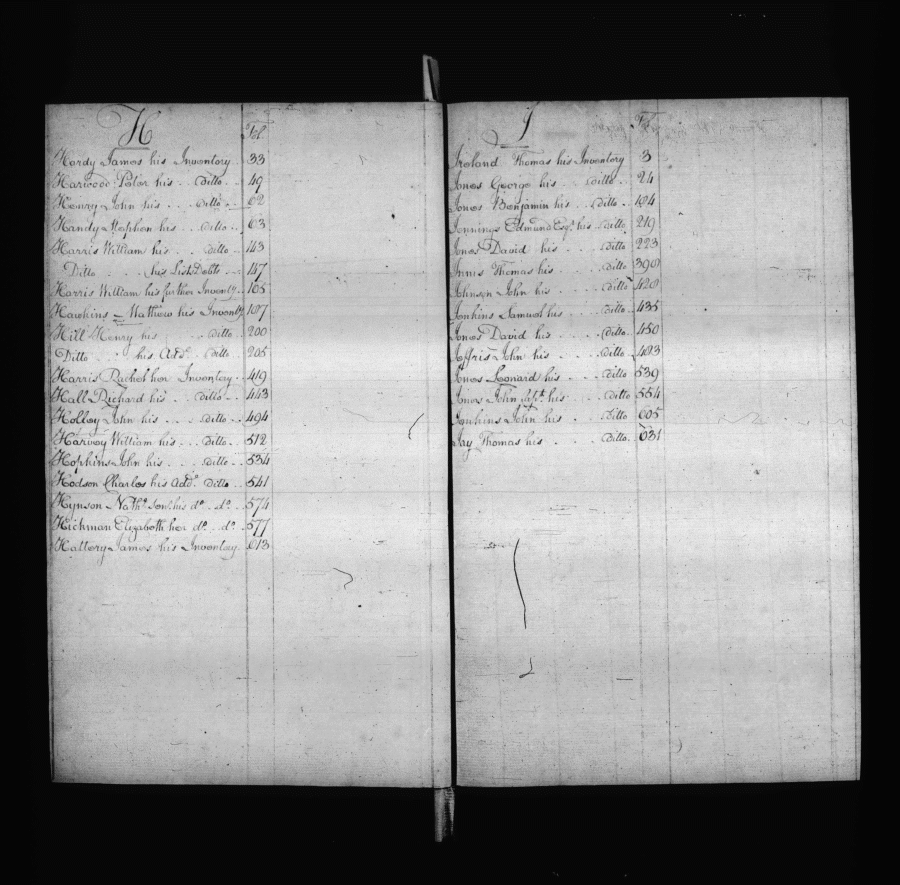 H
Fol.
Hardy James his Inventory . . 33
Harwood Peter his . . Ditto . . 49
Henry John his . . . Ditto . . 62
Handy Stephen his . . Ditto . . 63
Harris William his . . . Ditto . . 143
Ditto . . . his List Debts . . 147
Harris William his further Inventy . . 165
Hawkins Mathew his Inventy 197
Hill Henry his . . . Ditto . . 200
Ditto . . . his Addl. Ditto . . 205
Harris Rachel her Inventory . . 419
Hall Richard his . . Ditto . . . 443
Holley John his . . . Ditto . . 494
Harvey William his . . Ditto . . 512
Hopkins John his . . . Ditto . . 534
Hodson Charles his Addl. Ditto . . 541
Hynson Nathl. Senr. his do. . do. . 574
Hickman Elizabeth her do. . do. . 577
Hattery James his Inventory . 613
I
Fol.
Ireland Thomas his Inventory 3
Jones George his . . Ditto . . 24
Jones Benjamin his . . Ditto . . 194
Jennings Edmund Esqr. his . . Ditto 219
Jones David his . . . Ditto 223
Innis Thomas his . . . . Ditto 398
Johnson John his . . . . Ditto 428
Jenkins Samuel his . . . Ditto . . 435
Jones David his . . . . Ditto . . 450
Jeffris John his . . . . Ditto . . 483
Jones Leonard his . . . . Ditto 539
Jones John Sept. his . . . Ditto 554
Jenkins John his . . . Ditto 605
Jay Thomas his . . . Ditto . . 631